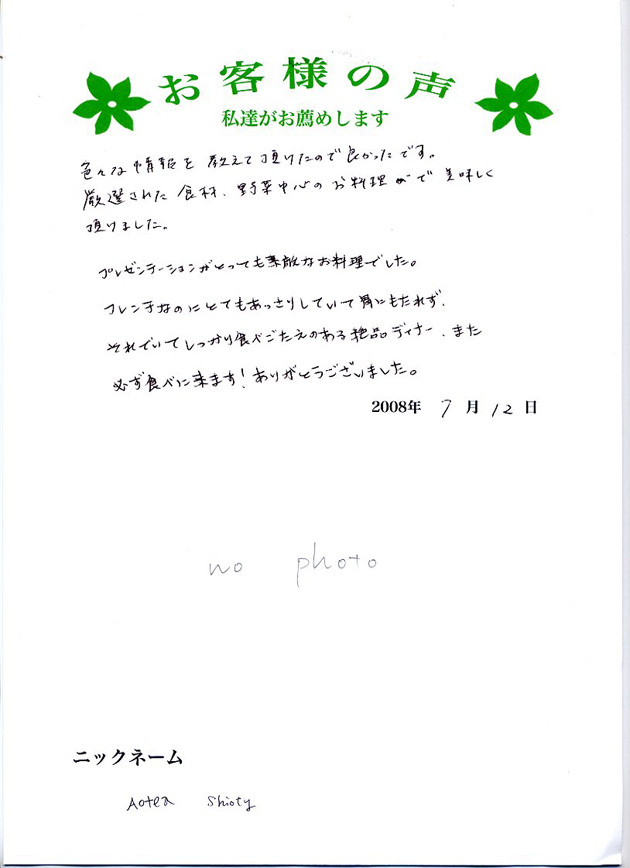 お客様の声
私達がお薦めします
色々な情報を教えて頂けたので良かったです。
厳選された食材、野菜中心のお料理がで美味しく
頂けました。
プレゼンテーションがとっても素敵なお料理でした。
フレンチなのにとてもあっさりしていて胃にもたれず、
それでいてしっかり食べごたえのある絶品ディナー、また
必ず食べに来ます!ありがとうございました。
2008年 7月12日
no photo
ニックネーム
Aotea Shioty